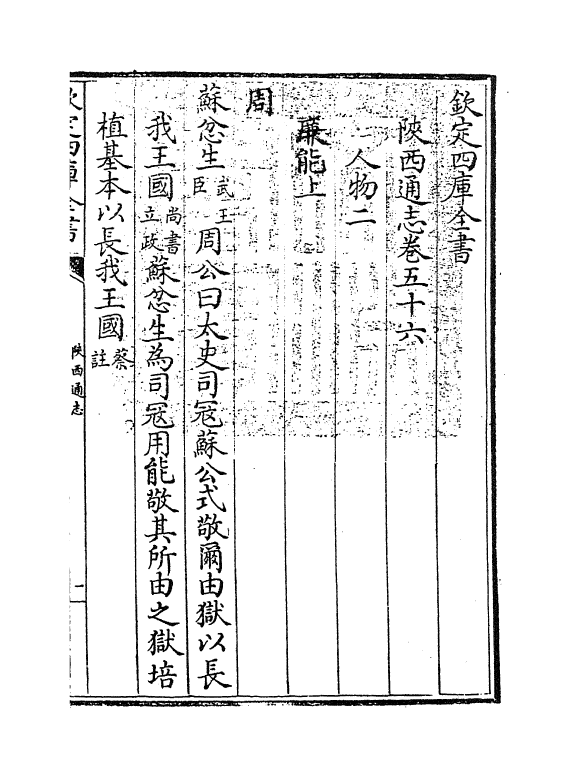 欽定四庫全書
陝西通志卷五十六
人物二
廉能上
周
蘇忿生武王臣周公曰太史司冦蘇公式敬爾由獄以長
我王國尚書立政蘇忿生為司冦用能敬其所由之獄培
植基本以長我王國蔡註
欽定四庫全書
陝西通志
一